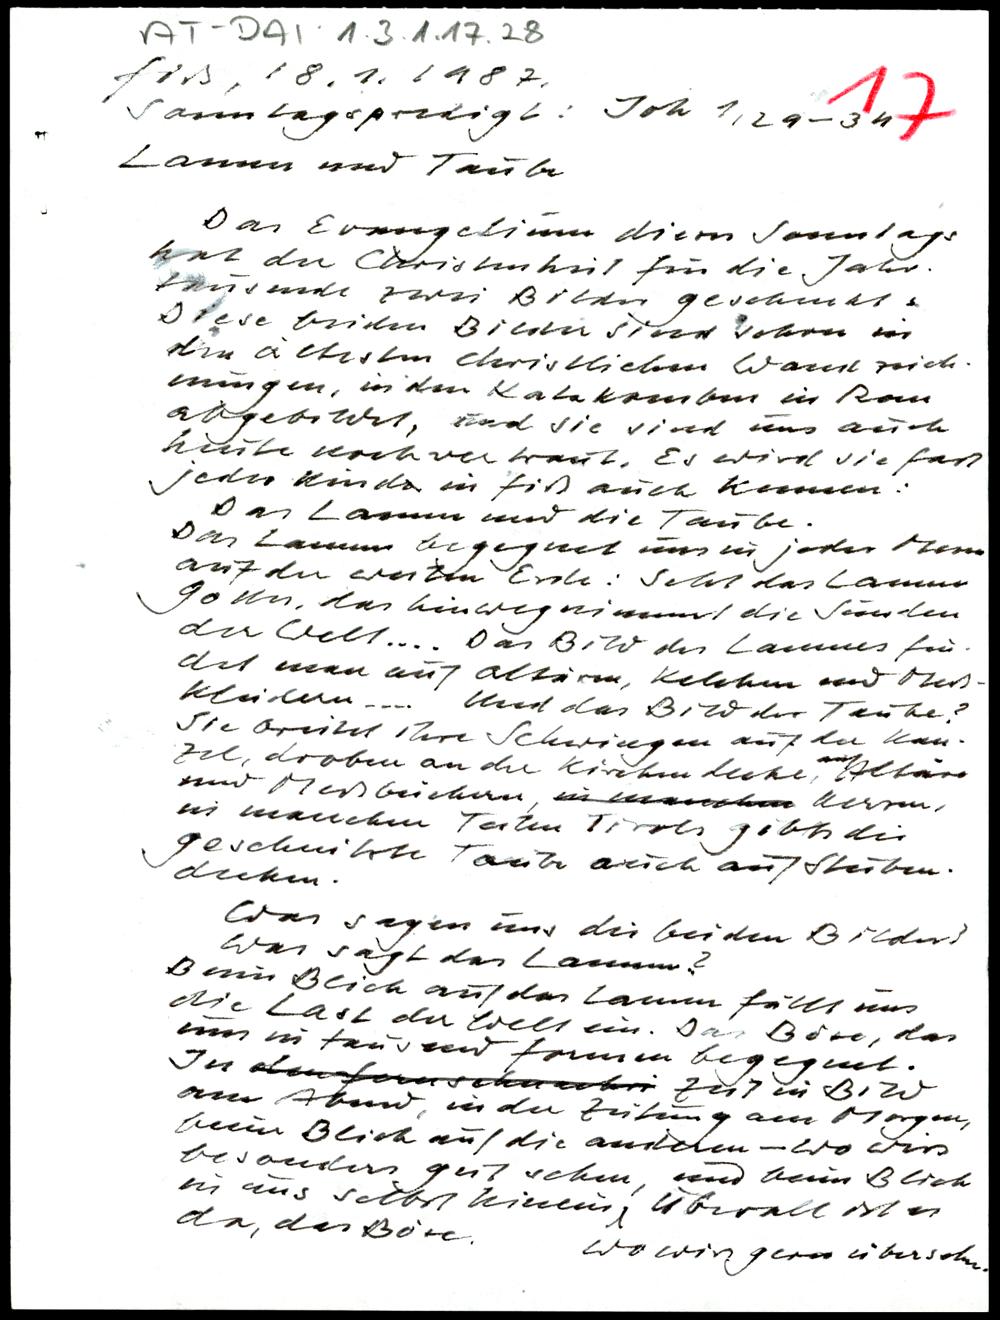 AT-DAI 1.3.1.17.28
17
Fiß, 18.1.1987.
Sonntagspredigt: Joh 1,29-34
Lamm und Taube
Das Evangelium dieses Sonntags
hat der Christenheit für die Jahr-
tausende zwei Bilder geschenkt.
Diese beiden Bilder sind schon in
den ältesten christlichen Wandzeich-
nungen, in den Katakomben in Rom
abgebildet, und sie sind uns auch
heute noch vertraut. Es wird sie fast
jedes Kind in Fiß auch kennen:
Das Lamm und die Taube.
Das Lamm begegnet uns in jeder Messe
auf der weiten Erde: Seht das Lamm
Gottes, das hinwegnimmt die Sünden
der Welt.... Das Bild des Lammes fin-
det man auf Altären, Kelchen und Meß-
kleidern.... Und das Bild der Taube?
Sie breitet ihre Schwingen auf der Kan-
zel, droben an der Kirchendecke, auf Altäre
und Meßbüchern, in manchen Herren,
in manchen Teilen Tirols gibt's die
geschnitzte Taube auch auf Stuben-
decken.
Was sagen uns die beiden Bilder?
Was sagt das Lamm?
Beim Blick auf das Lamm fällt uns
die Last der Welt ein. Das Böse, das
uns in tausend Formen begegnet.
In Zeit in Bild
am Abend, in der Zeitung am Morgen,
beim Blick auf die anderen – wo wirs
besonders gut sehen, und beim Blick
in uns selbst hinein, Überall ist es
da, das Böse.
wo wirs gern übersehn.